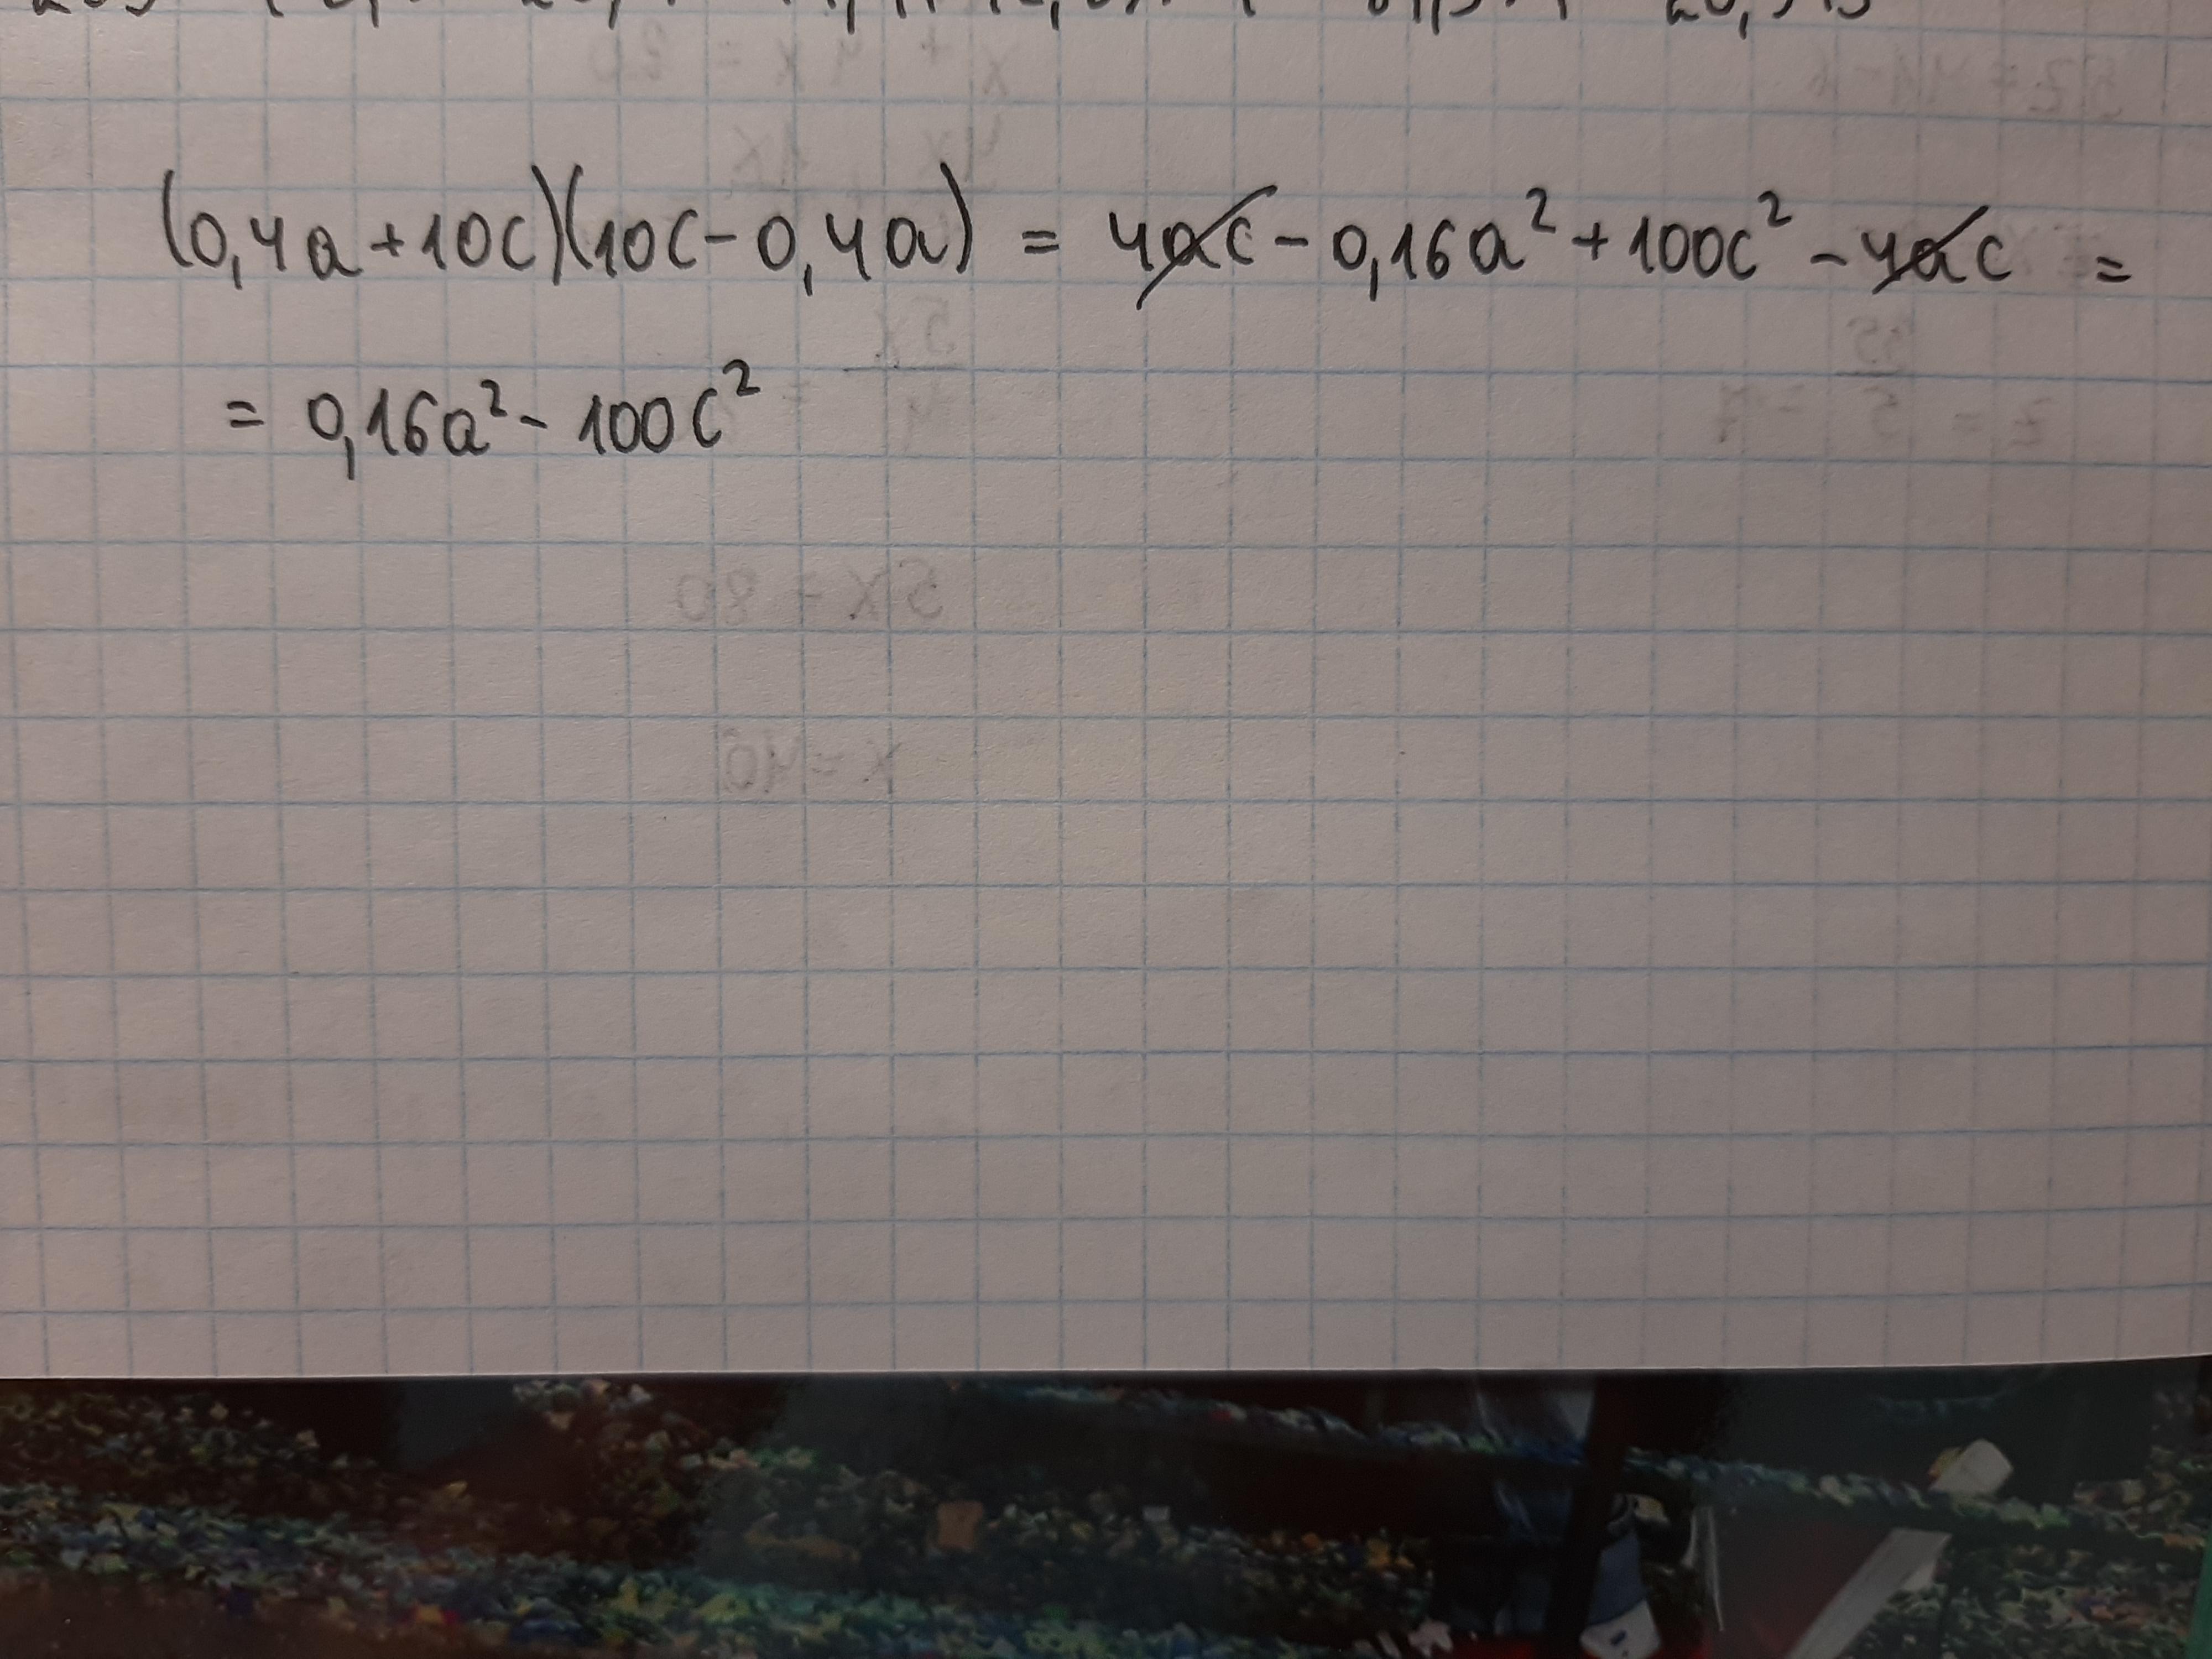 (0,4a+10c)(10c-0,4a) = 4ac - 0,16a² + 100c² - 4ac =
= 0,16a² - 100c²